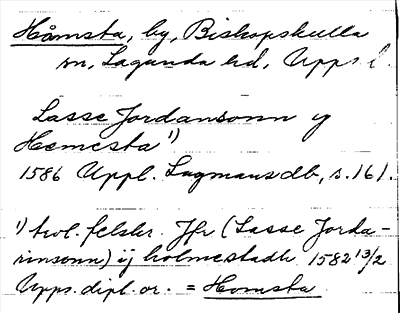 Håmsta, by, Biskopskulla
sn, Lagunda hd, Upps. l.
Lasse Jordansonn y
Hemesta 1)
1586 Uppl. Lagmansdb, s. 161.
1) trol. felskr. Jfr (Lasse Jorda-
rinsonn) ij holmestadh 1582 13/2
Upps. dipl. or. = Homsta